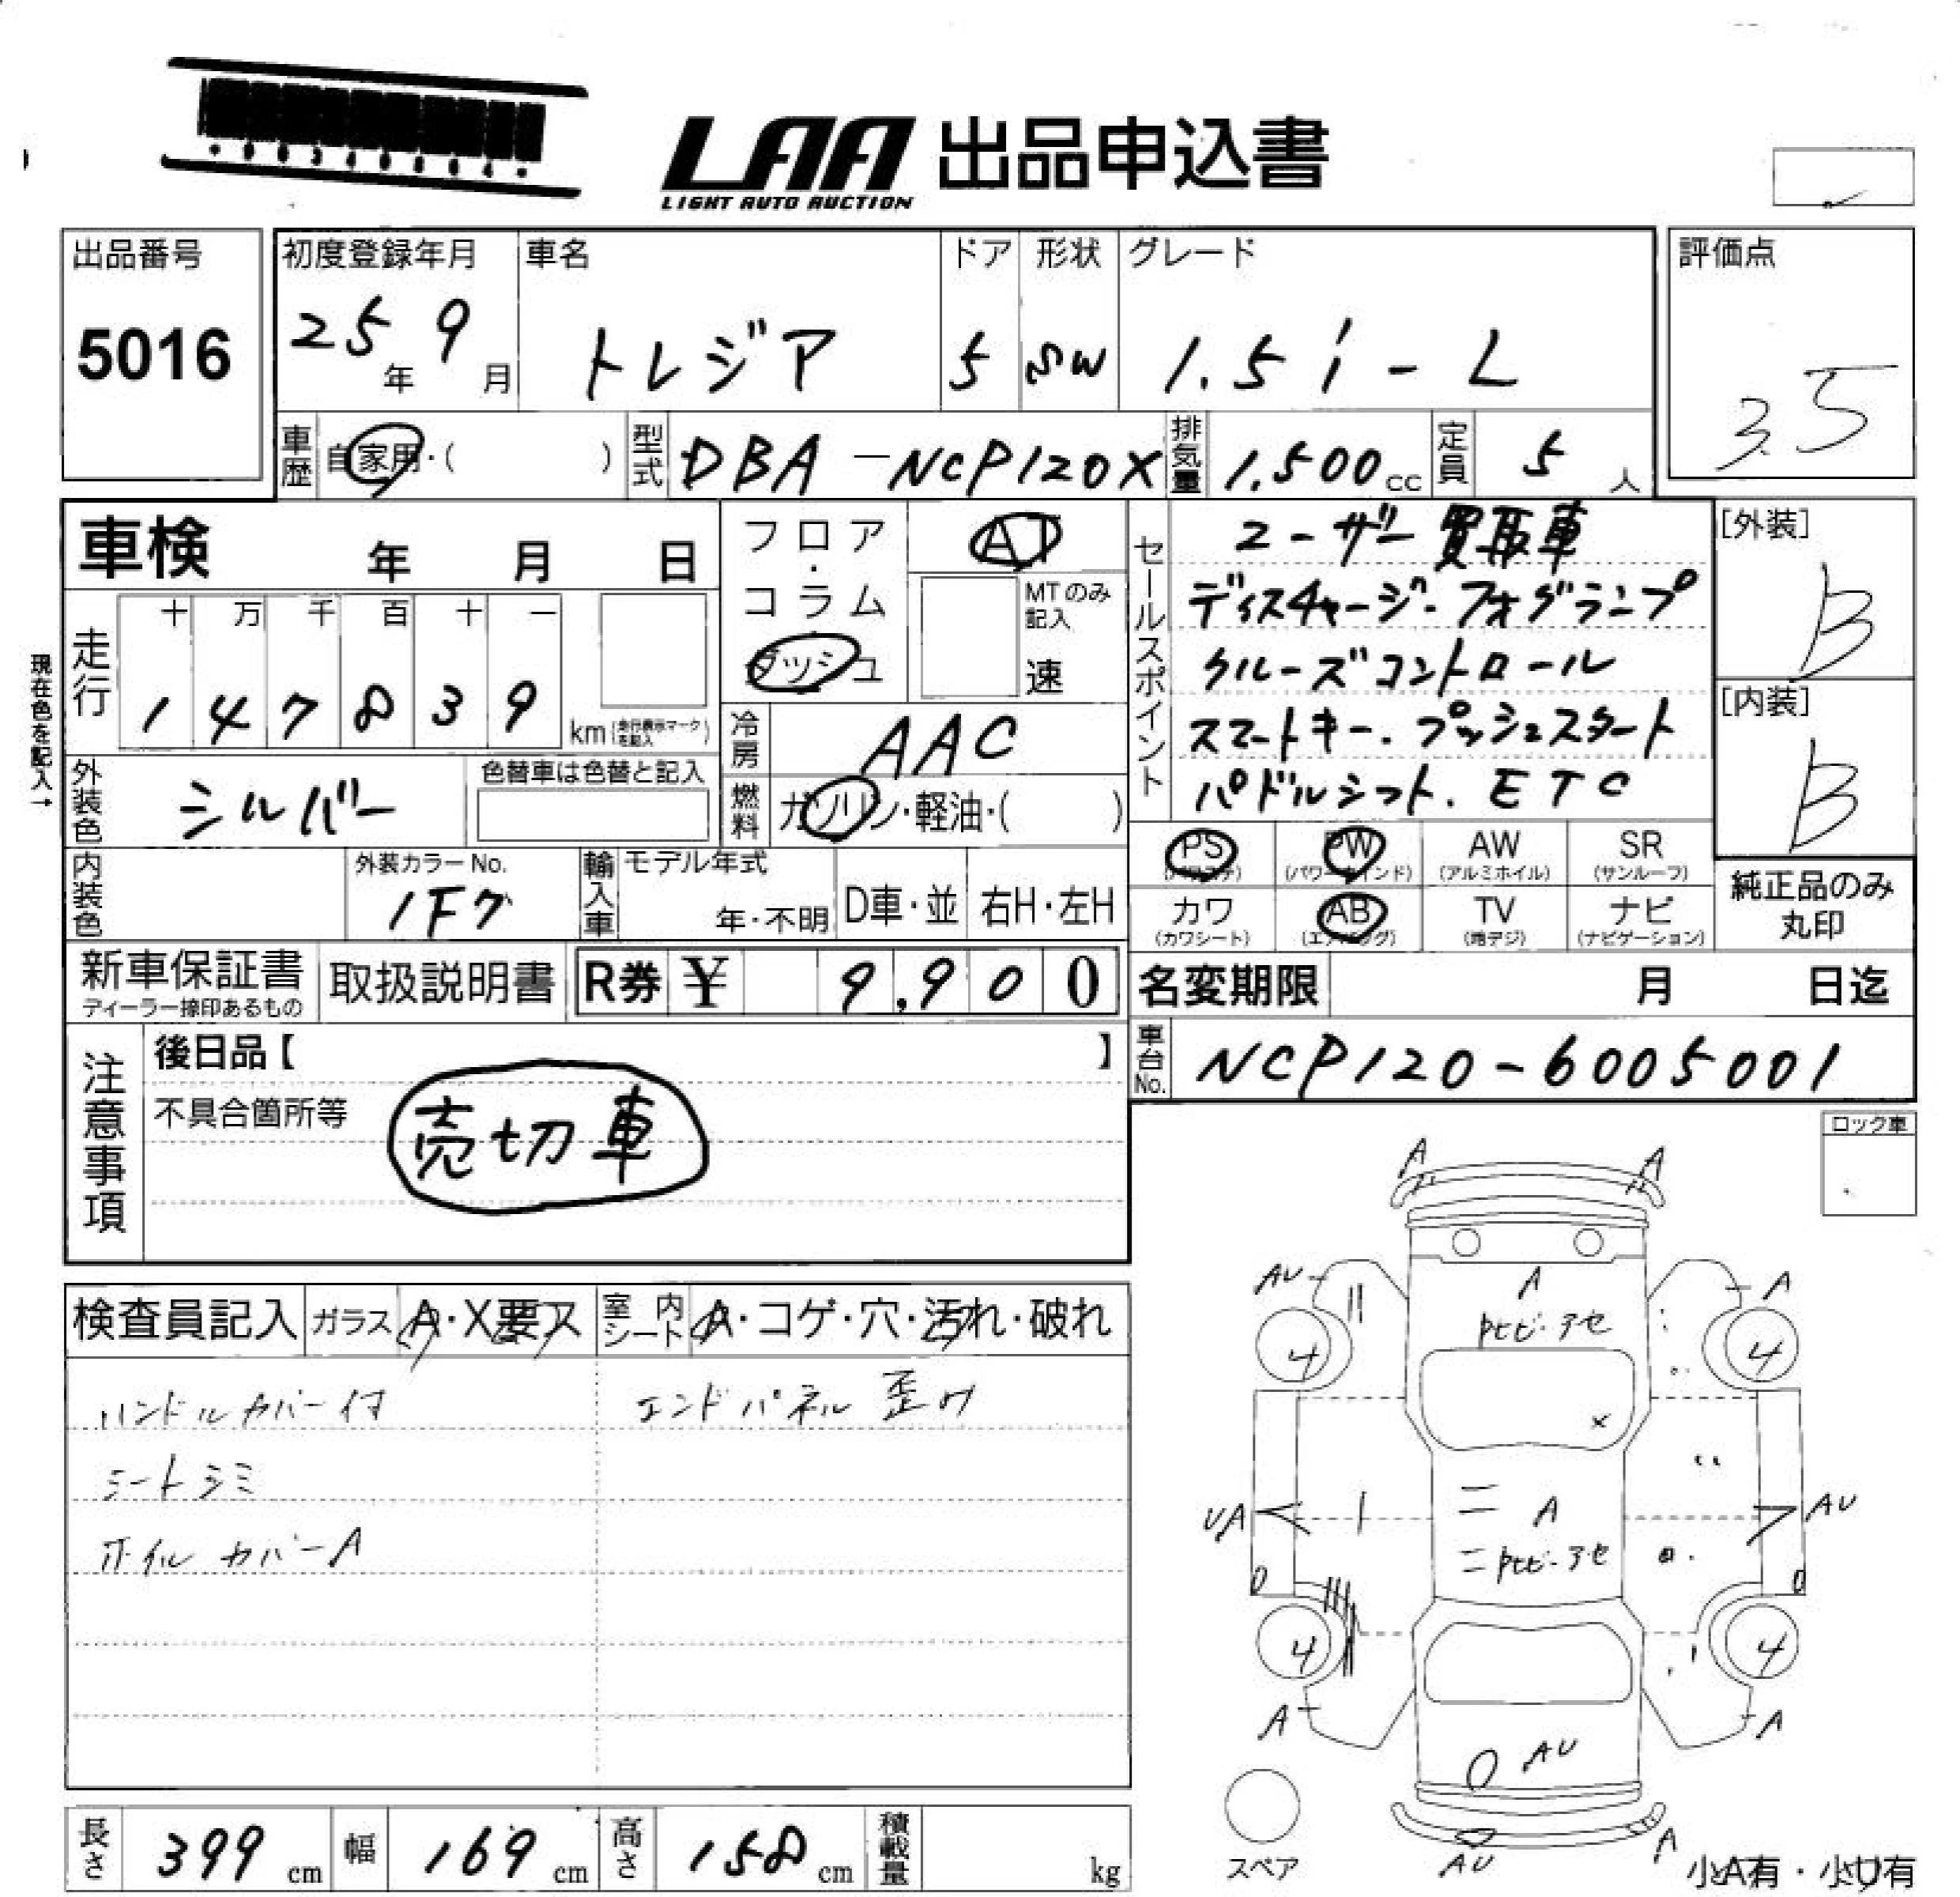 LAA 出品申込書
LIGHT AUTO AUCTION
出品番号
5016
初度登録年月
25年 9月
車名
トレジア
ドア
5
形状
SW
グレード
1.5 i - L
評価点
3.5
車歴 自家用・( )
型式 DBA-NCP120X
排気量 1,500 cc
定員 5人
車検 年 月 日
フロア・コラム
ダッシュ
AT
MTのみ記入
速
セールスポイント
ユーザー買取車
ディスチャージ・フォグランプ
クルーズコントロール
スマートキー.プッシュスタート
パドルシフト.ETC
[外装]
B
[内装]
B
現在色を記入→
走行
十 万 千 百 十 一
1 4 7 8 3 9 km(走行表示マークを記入)
冷房 AAC
外装色 シルバー
色替車は色替と記入
燃料 ガソリン・軽油・( )
PS (パワステ)
PW (パワーウインド)
AW (アルミホイル)
SR (サンルーフ)
カワ (カワシート)
AB (エアバッグ)
TV (地デジ)
ナビ (ナビゲーション)
純正品のみ
丸印
内装色
外装カラーNo.
1F7
輸入車
モデル年式
年・不明
D車・並
右H・左H
新車保証書
ディーラー捺印あるもの
取扱説明書
R券 ¥ 9,900
名変期限 月 日迄
車台No. NCP120-6005001
注意事項
後日品【 】
不具合箇所等
売切車
ロック車
検査員記入
ガラス A・X要ス
室内シート A・コゲ・穴・汚れ・破れ
ハンドルカバー付
エンドパネル 歪み
シートシミ
ホイルカバーA
A A
AU A
A
4 4
×
UA A AU
4 4
A A
AU
AU A
スペア
小A有・小U有
長さ 399 cm
幅 169 cm
高さ 158 cm
積載量 kg